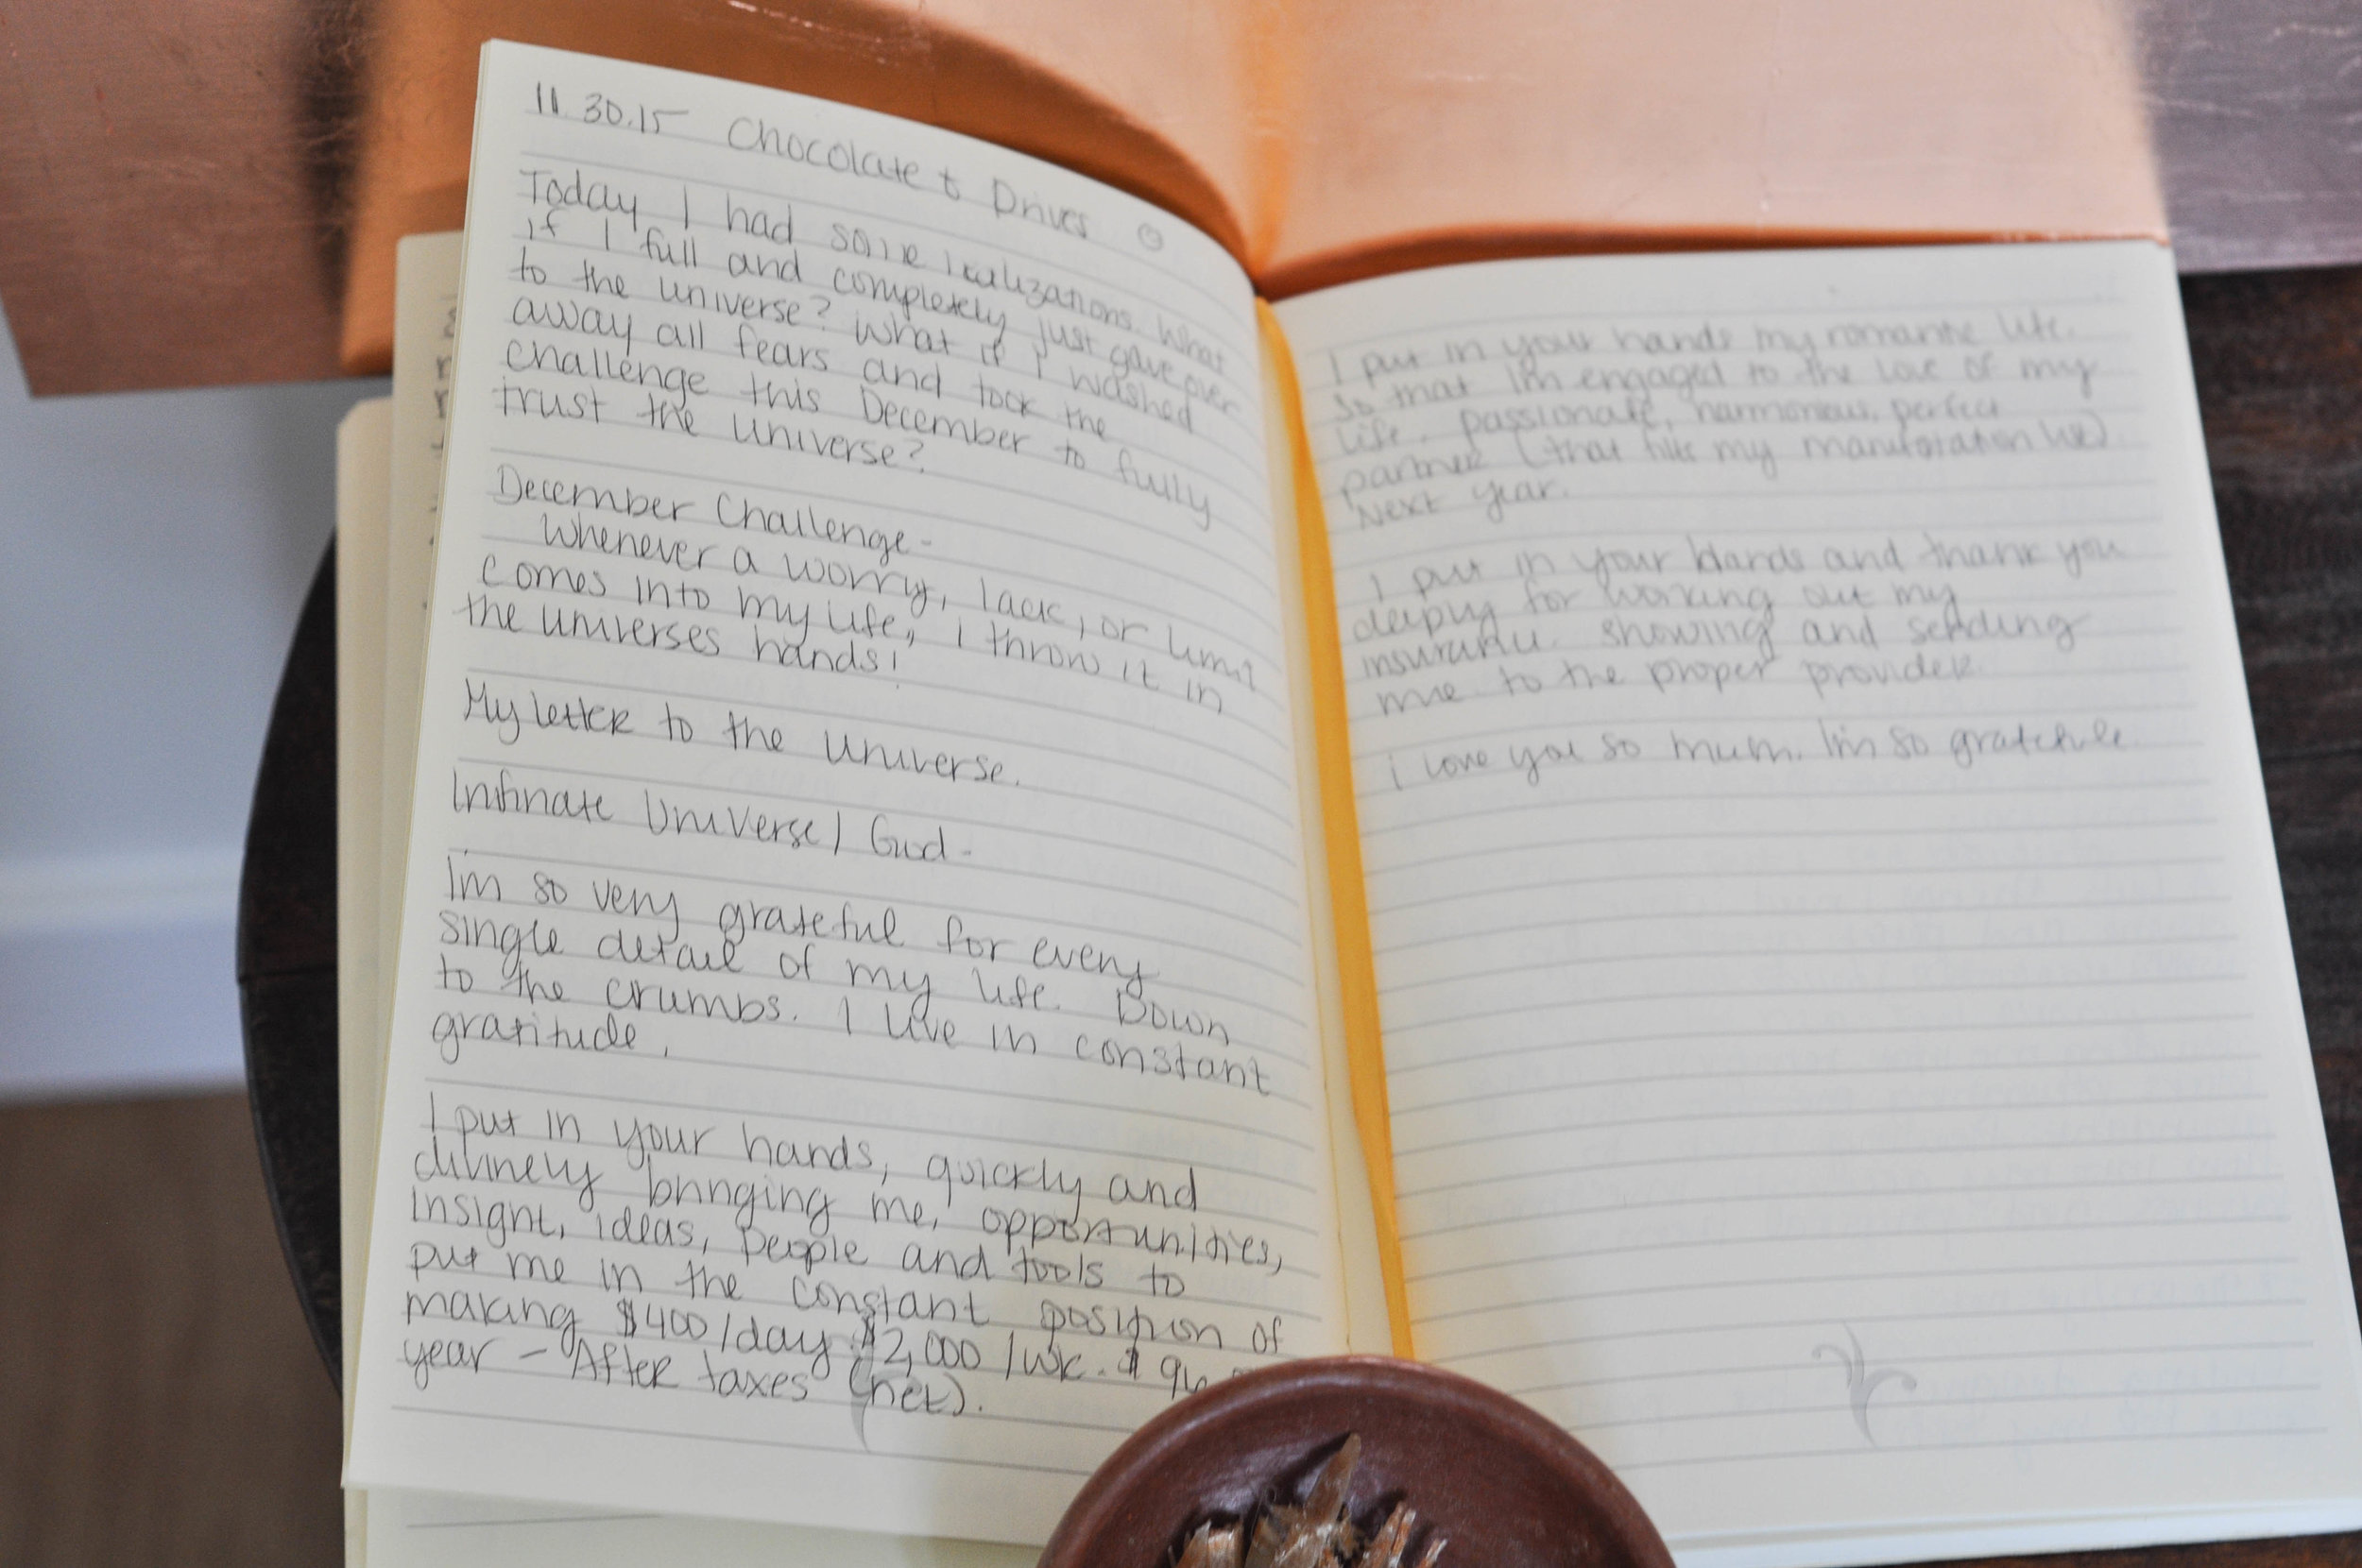 11.30.15 Chocolate & Drives
Today I had some realizations. What
if I full and completely just gave over
to the universe? What if I washed
away all fears and took the
challenge this December to fully
trust the universe?
December Challenge-
Whenever a worry, lack, or limit
comes into my life, I throw it in
the universes hands!
My letter to the universe.
Infinate Universe/ God-
I'm so very grateful for every
single detail of my life. Down
to the crumbs. I live in constant
gratitude.
I put in your hands, quickly and
divinely bringing me, opportunities,
insight, ideas, people and tools to
put me in the constant position of
making $400/day. $2,000/wk. $96
year - After taxes (net).
I put in your hands my romantic life.
So that I'm engaged to the love of my
life. passionate, harmonious, perfect
partner (that fills my manifestation list).
Next year.
I put in your hands and thank you
deeply for working out my
insurance. Showing and sending
me to the proper provider.
i love you so much. I'm so grateful.